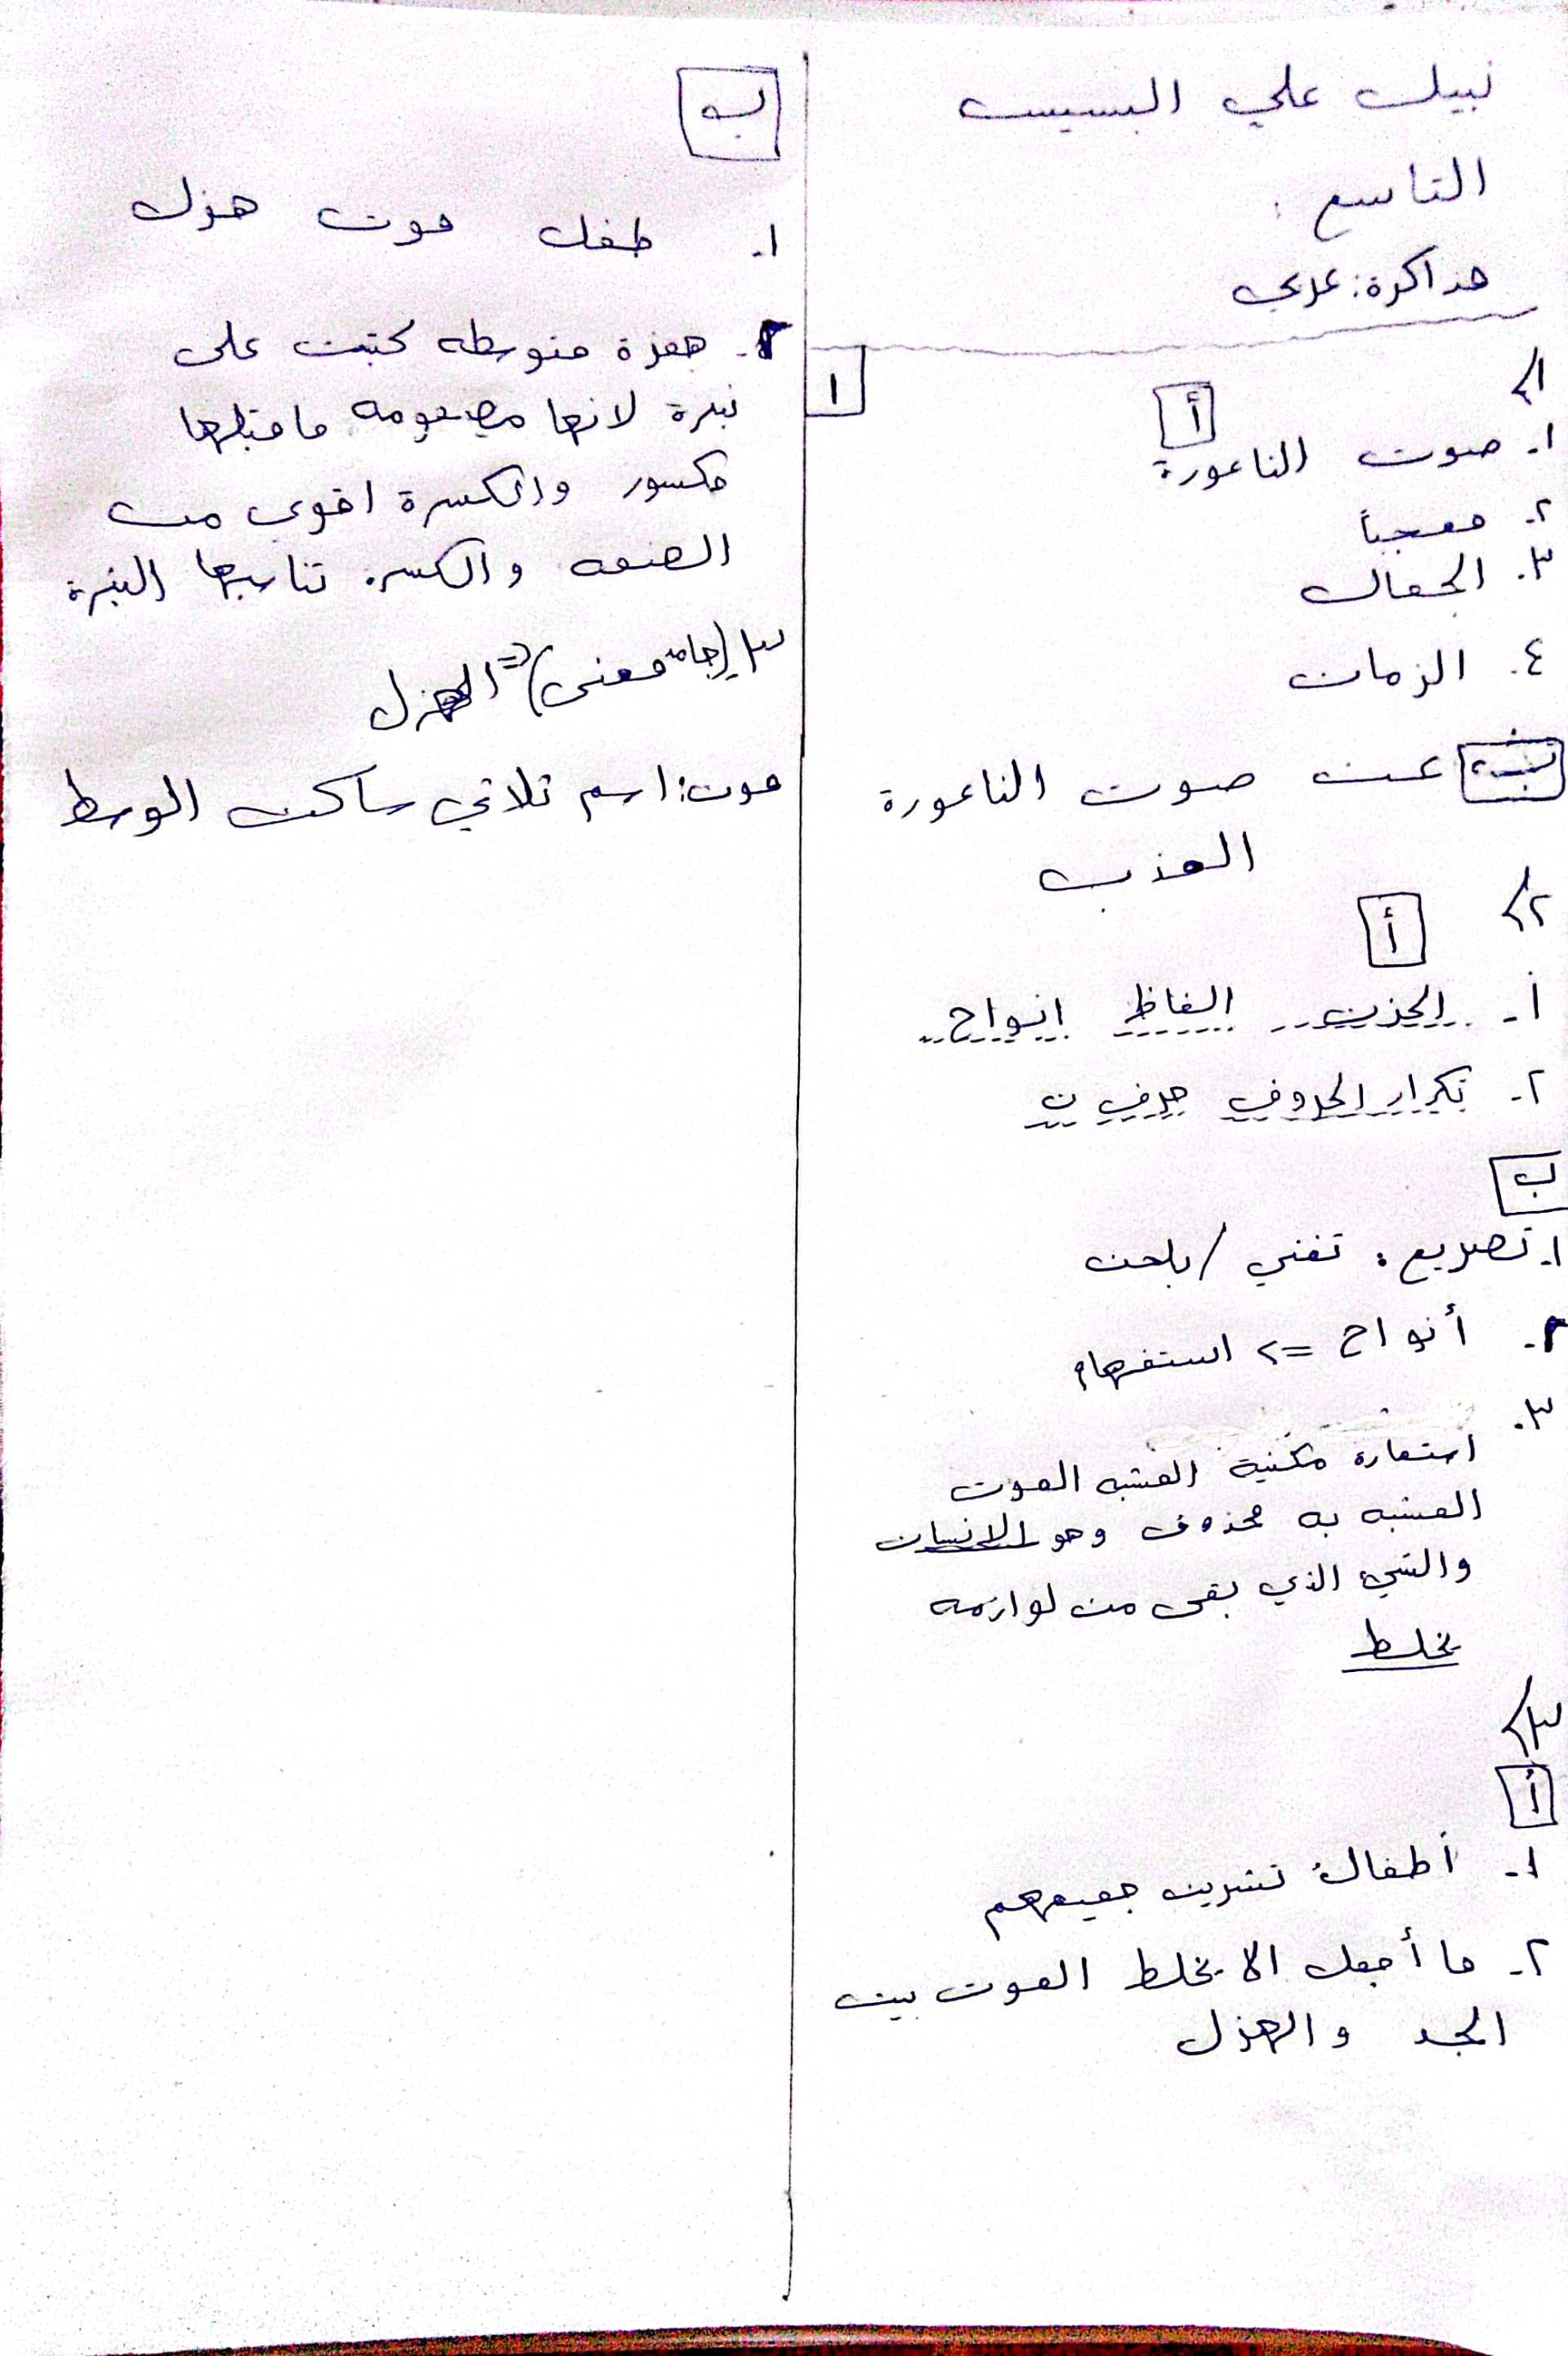 نبيل علي البسيس
التاسع:
مذاكرة: عربي
١
١>
أ
١- صوت الناعورة
٢- معجباً
٣. الجمال
٤. الزمان
ب عن صوت الناعورة
العذب
٢>
أ
١- الحزن الفاظ انواح
٢- تكرار الحروف حرف ن
ب
١- تصريع: تغني / بلحن
٢- أنواح => استفهام
٣.
استعارة مكنية المشبه الموت
المشبه به محذوف وهو الانسان
والشيء الذي بقى من لوازمه
يخلط
٣>
أ
١- أطفالُ تشرين جميعهم
٢- ما أجمل الا يخلط الموت بين
الجد والهزل
ب
١- طفل موت هزل
٢- همزة متوسطه كتبت على
نبرة لانها مضمومه ما قبلها
مكسور والكسرة اقوى من
الضمه والكسرة تناسبها النبرة
٣- (جامد معنى) <= الهزل
موت: اسم ثلاثي ساكن الوسط